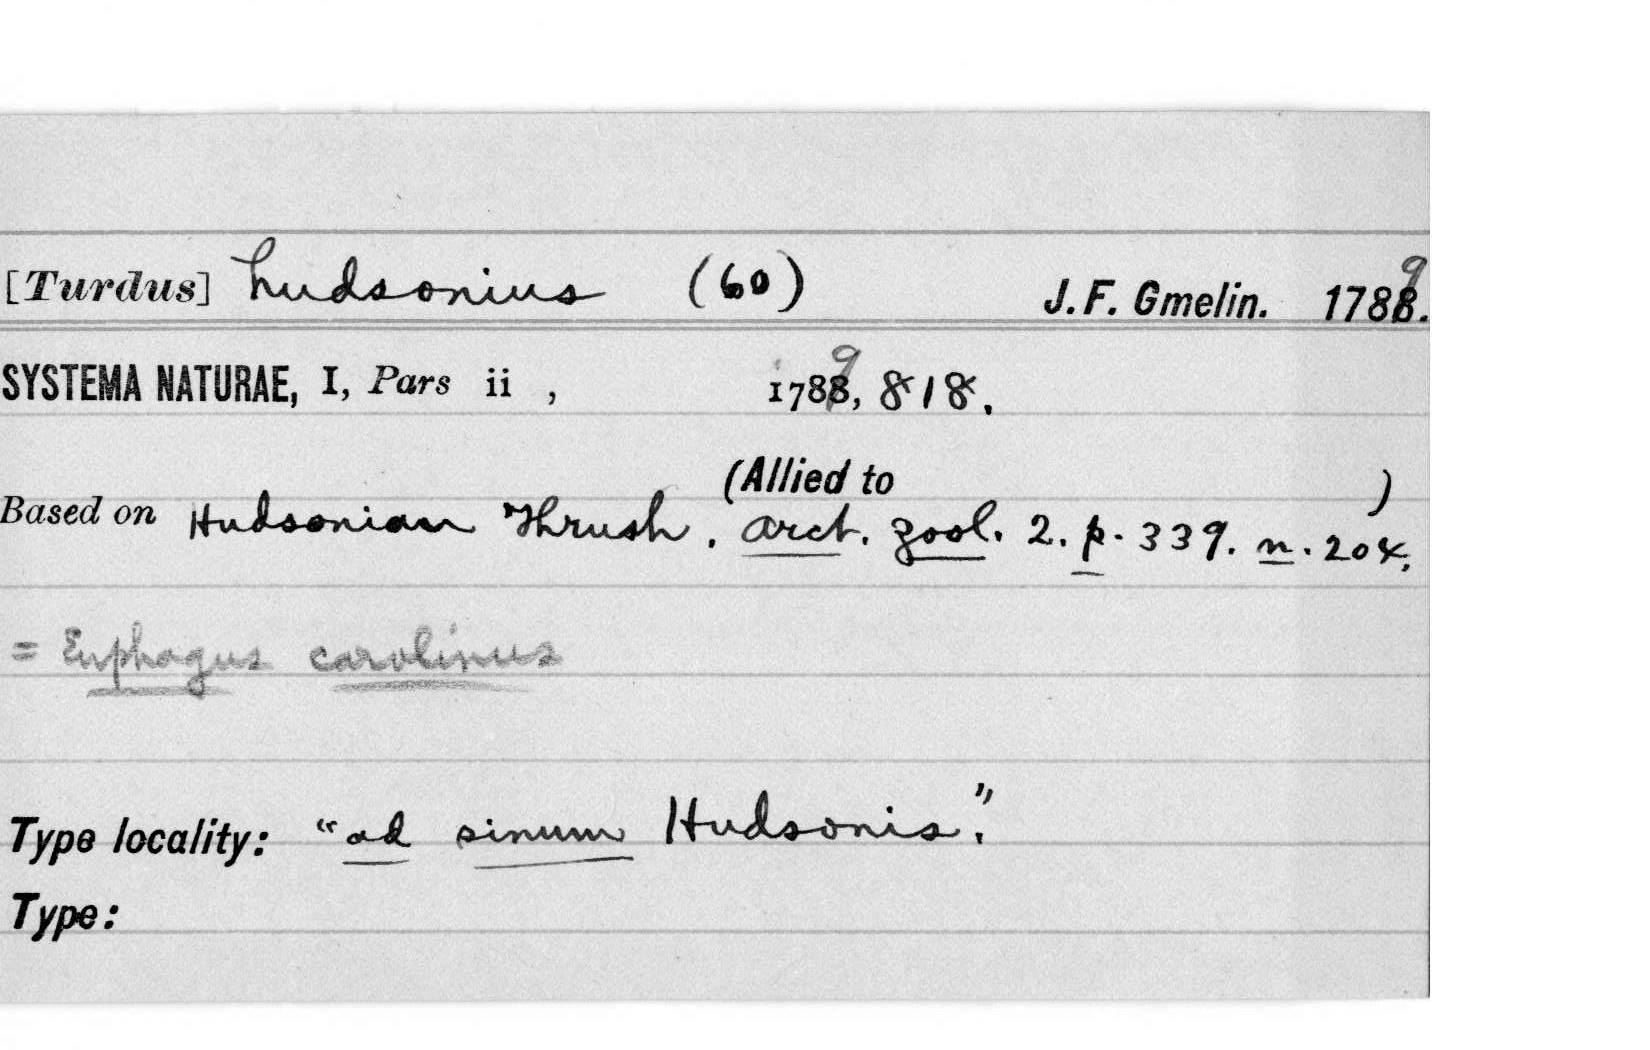 [Turdus] hudsonius (60) J. F. Gmelin. 1789.
SYSTEMA NATURAE, I, Pars ii , 1789, 818.
(Allied to )
Based on Hudsonian Thrush. Arct. Zool. 2. p. 339. n. 204.
= Euphagus carolinus
Type locality: "ad sinum Hudsonis."
Type: